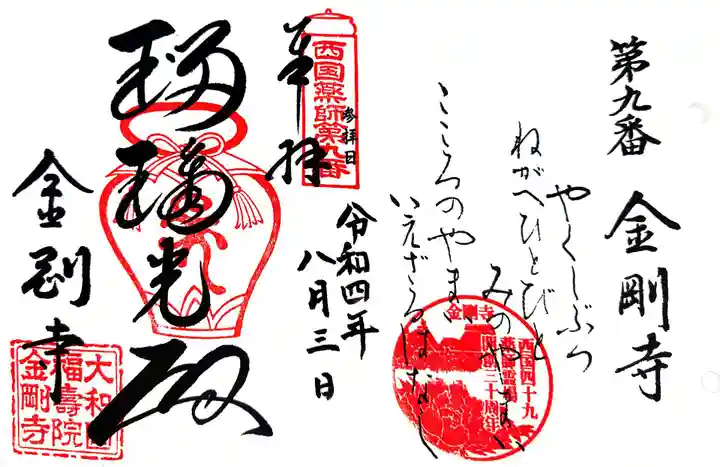 第九番 金剛寺
やくしぶつ
ねがへひとびと
みのやまい
こころのやまい
いえざるはなし
西国四十九
薬師霊場
開創三十周年
金剛寺
奉拝
西国薬師第九番
参拝日
令和四年
八月三日
瑠璃光殿
金剛寺
大和国
福壽院
金剛寺